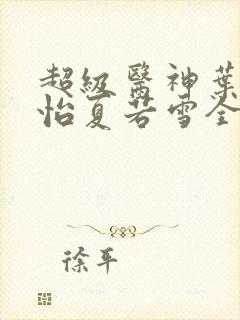 超級醫神葉
怡夏若雪全
徐平